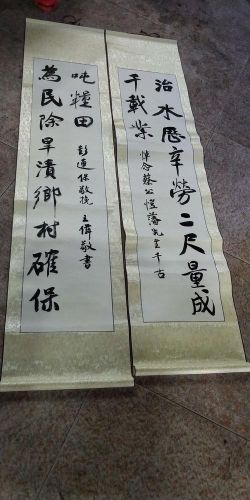 治水歷辛勞二尺量成
千載業
悼念蔡公愷藩先生千古
為民除旱漬鄉村確保
吨糧田
彭運保敬挽 王偉敬書